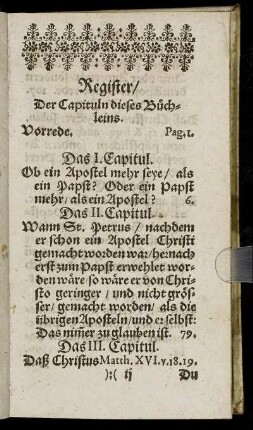 Register/
Der Capituln dieses Büch-
leins.
Vorrede. Pag. 1.
Das I. Capitul.
Ob ein Apostel mehr seye/ als
ein Papst? Oder ein Papst
mehr/ als ein Apostel? 6.
Das II. Capitul.
Wann St. Petrus/ nachdem
er schon ein Apostel Christi
gemacht worden war/ hernach
erst zum Papst erwehlet wor-
den wäre/ so wäre er von Chri-
sto geringer/ und nicht grös-
ser/ gemacht worden/ als die
übrigen Aposteln/ und er selbst:
Das nim̃er zu glauben ist. 79.
Das III. Capitul.
Daß Christus Matth. XVI. v. 18. 19.
):( ij Du